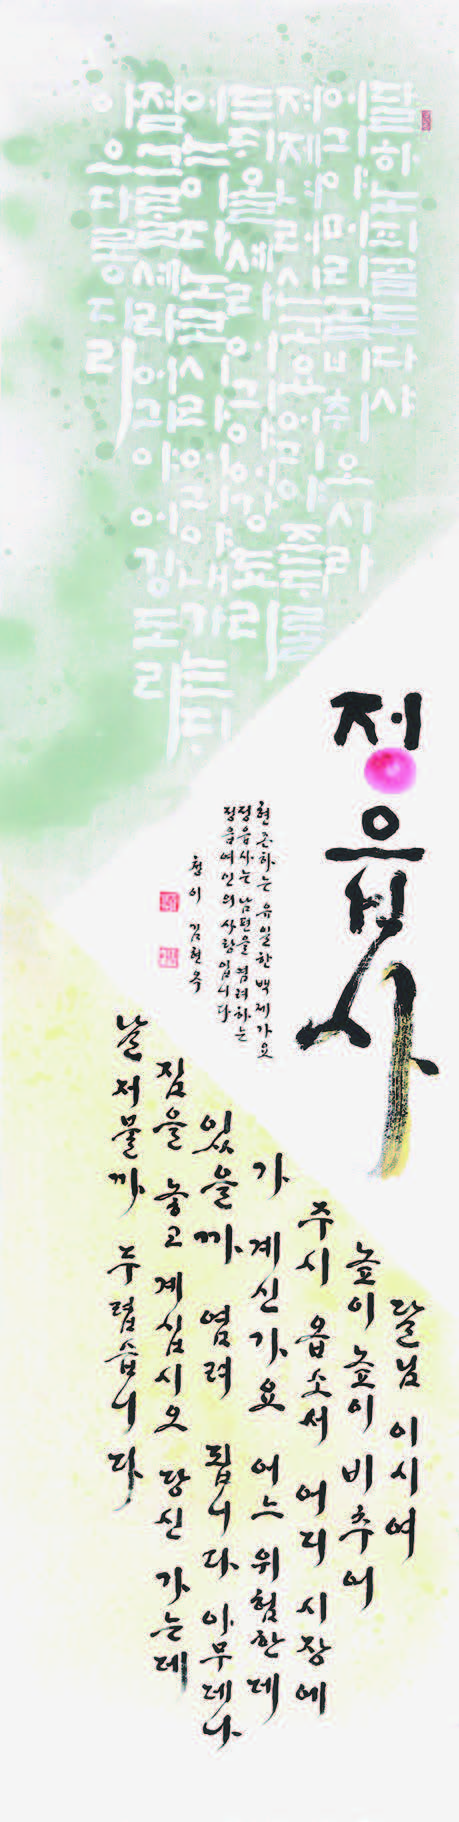 달하노피곰도다샤
어긔야머리곰비취오시라
져제녀러신고요어긔야즌ᄃᆡ를
드ᄃᆡ욜세라어긔야어강됴리
어느이다노코시라어긔야내가논ᄃᆡ
점그를세라어긔야어강도리
아으다롱디리
정읍사
현존하는 유일한 백제가요
정읍사는 남편을 염려하는
정읍여인의 사랑입니다
청이 김현옥
달님이시여
높이높이 비추어
주시옵소서 어디 시장에
가 계신가요 어느 위험한데
있을까 염려 됩니다 아무데나
짐을 놓고 계십시오 당신 가는데
날 저물까 두렵습니다